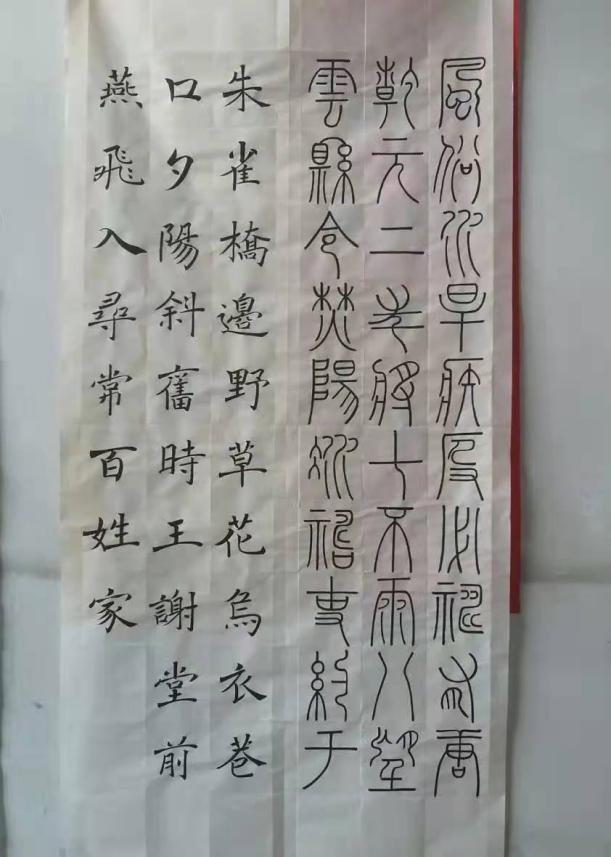 風俗水旱疾疫必禱有唐
乾元二年秋七不雨八望
雲縣令陽冰禱事約于
朱雀橋邊野草花烏衣巷
口夕陽斜舊時王謝堂前
燕飛入尋常百姓家